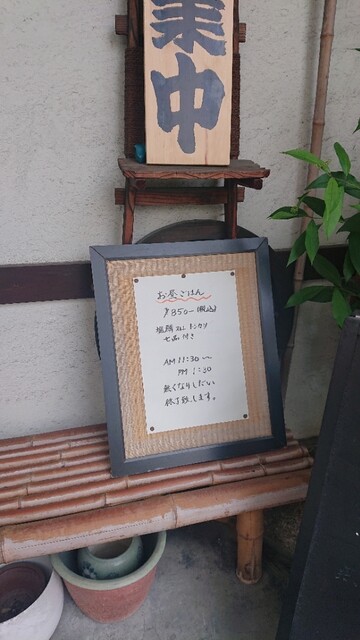 業中
お昼ごはん
¥850-(税込)
塩鯖 又は トンカツ
七品付き
AM 11:30〜
PM 1:30
無くなりしだい
終了致します。